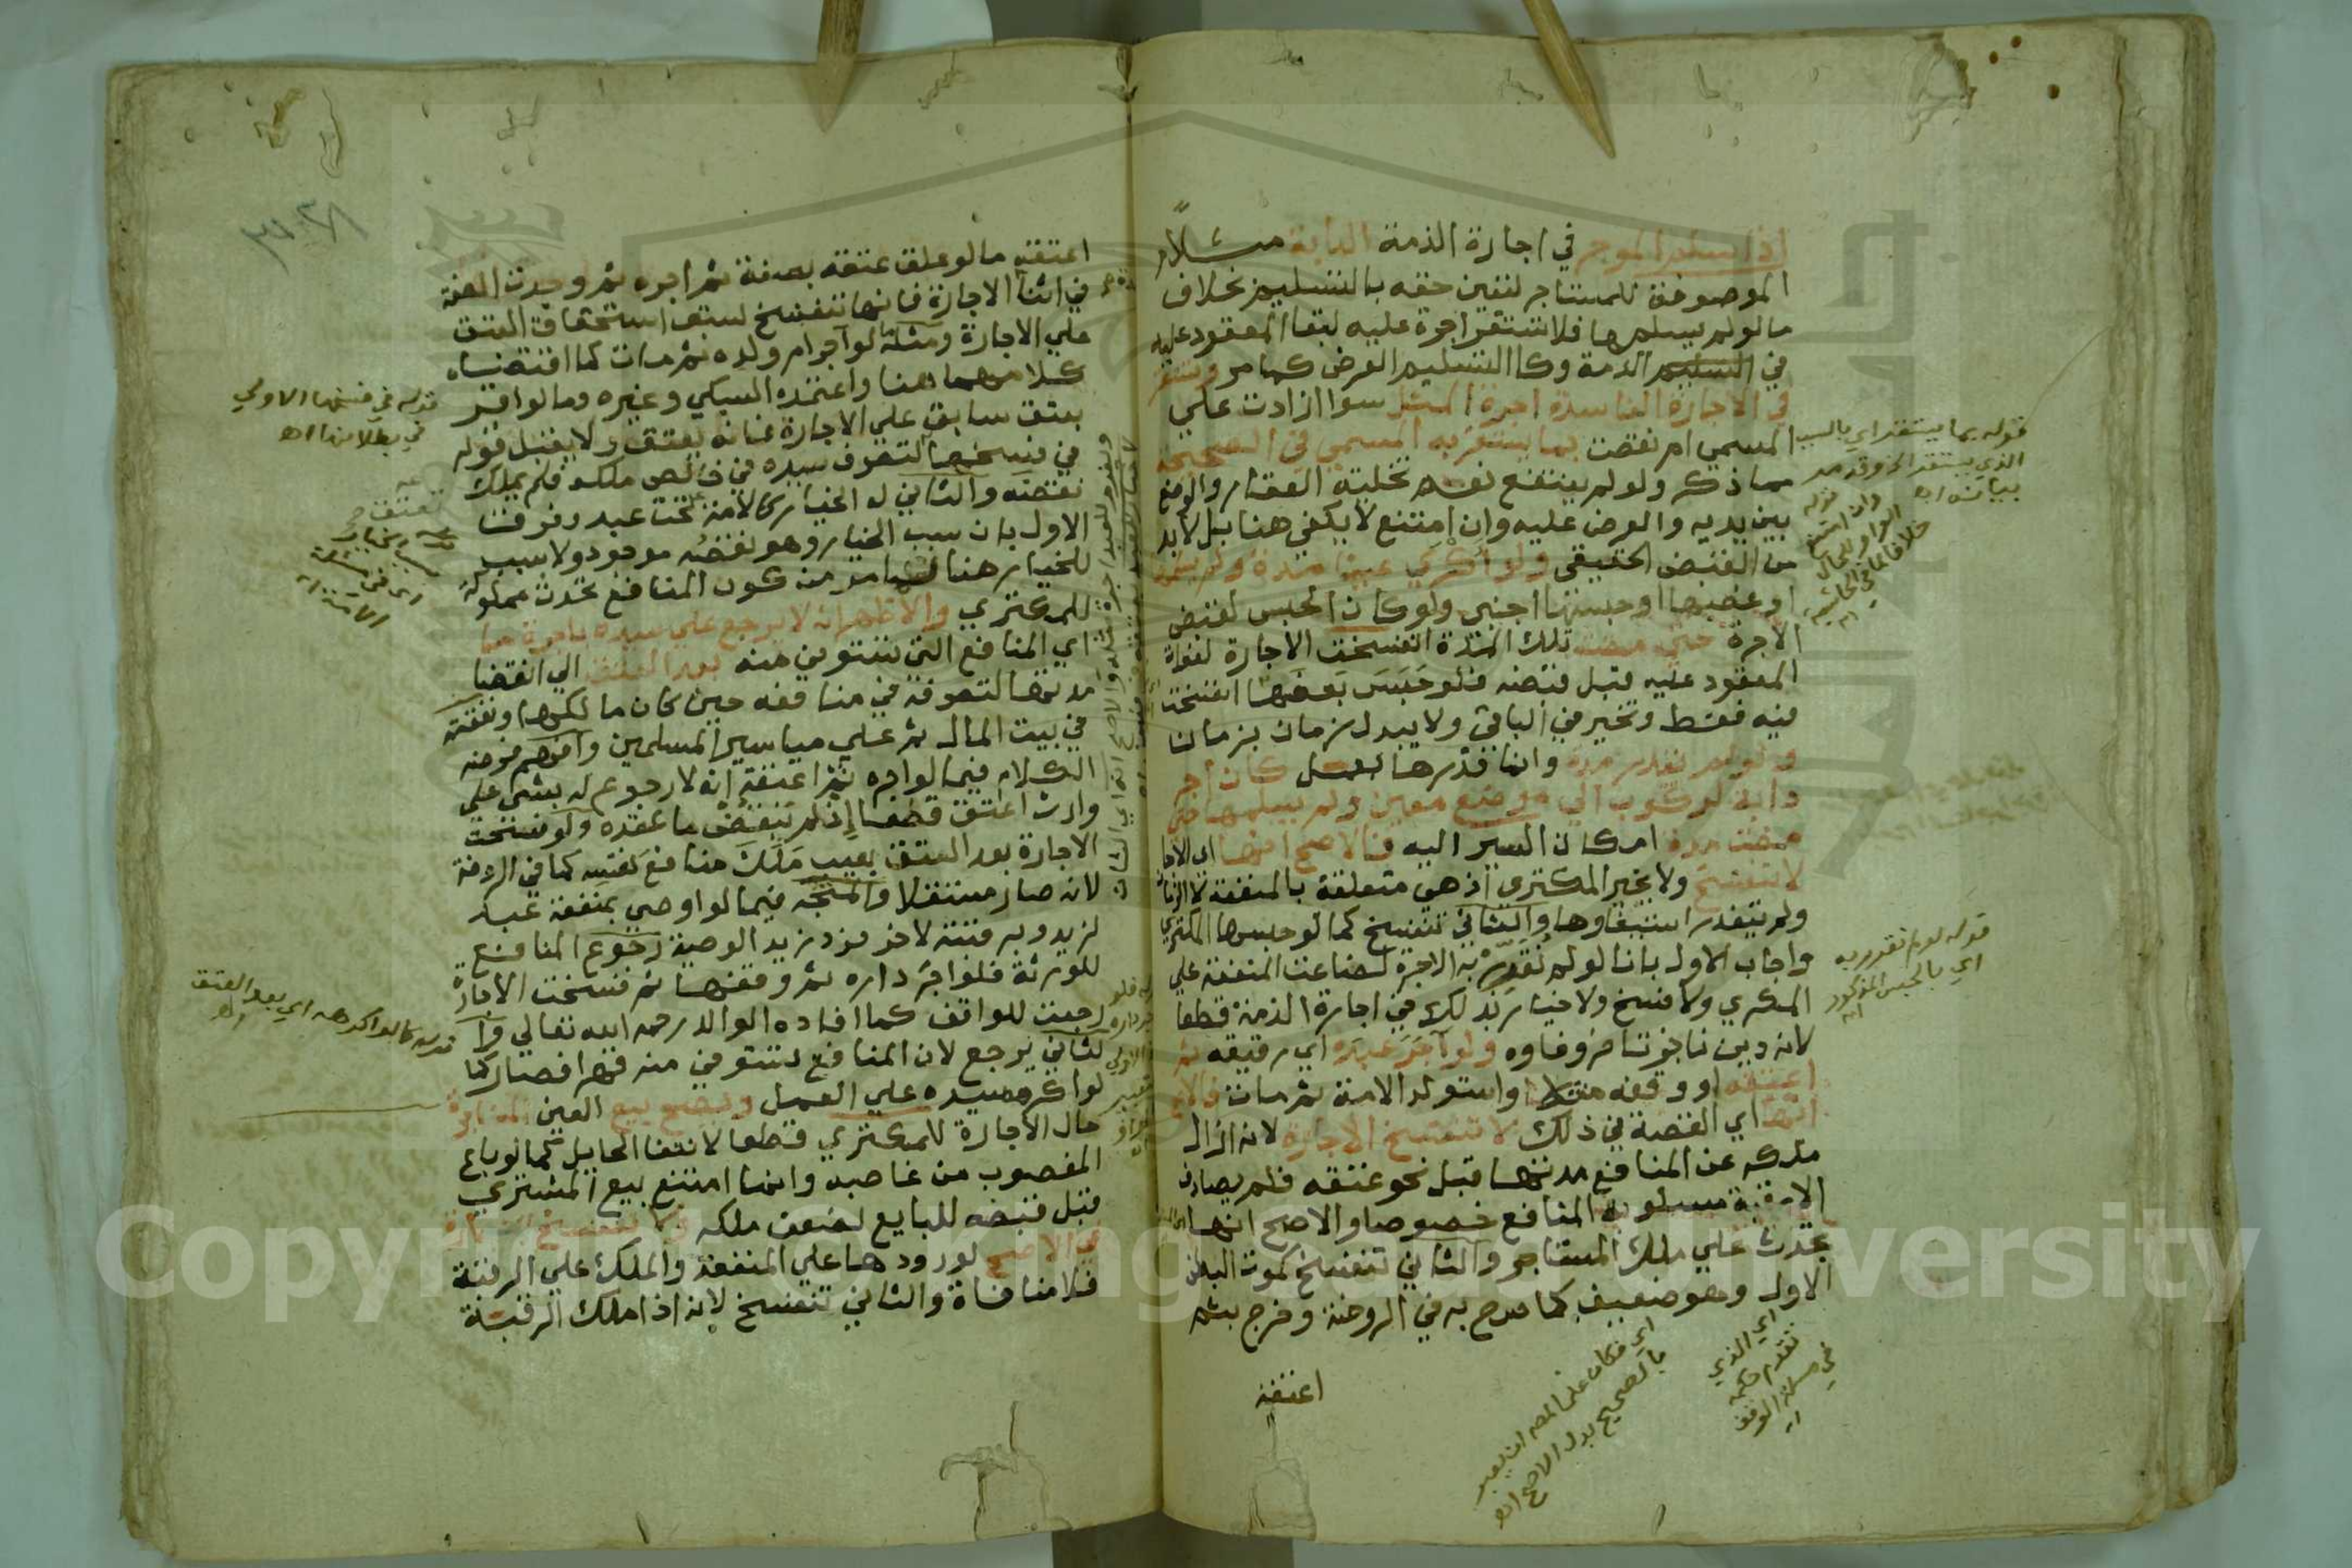 اذا سلم الموجر في اجارة الذمة الدابة مثلا
الموصوفة للمستاجر لتعين حقه بالتسليم بخلاف
ما لو لم يسلمها فلا تستقر اجرة عليه لبقا المعقود عليه
في الذمة وكالتسليم العرض كما مر وتستقر
في الاجارة الفاسدة اجرة المثل سوا ازادت علي
المسمي ام نقصت بما يستقر به المسمي في الصحيحة
مما ذكر ولو لم ينتفع نعم تخلية العقار والوضع
بين يديه والعرض عليه وان امتنع لا يكفي هنا بل لابد
من القبض الحقيقي ولو اكري عينا مدة ولم يسلمها
او غصبها او حبسها اجنبي ولو كان الحبس لقبض
الاجرة حتي مضت تلك المدة انفسخت الاجارة لفوات
المعقود عليه قبل قبضه فلو حبس بعضها انفسخت
فيه فقط وتخير في الباقي ولا يبدل زمان بزمان
ولو لم يقدر مدة وانما قدرها بعمل كان اجر
دابة لركوب الي موضع معين ولم يسلمها حتي
مضت مدة امكان السير اليه فالاصح انها اي الاجارة
لا تنفسخ ولا يخير المكتري اذ هي متعلقة بالمنفعة لا الزمان
ولم يتعذر استيفاوها والثاني تنفسخ كما لو حبسها المكتري
واجاب الاول بانا لو لم نقدر به الاجرة لضاعت المنفعة علي
المكري ولا فسخ ولا خيار بذلك في اجارة الذمة قطعا
لانه دين ناجز تاخر وفاوه ولو آجر عبده اي رقيقه ثم
اعتقه او وقفه مثلا او استولد الامة ثم مات فالاصح
انها اي القصة في ذلك لا تنفسخ الاجارة لانه ازال
ملكه عن المنافع مدتها قبل نحو عتقه فلم يصادف
الا رقبة مسلوبة المنافع خصوصا والاصح انها
تحدث علي ملك المستاجر والثاني تنفسخ كموت البطن
الاول وهو ضعيف كما صرح به في الروضة وخرج بثم
اعتقه
قوله بما يستقر اي بالسبب
الذي يستقر الخ وقد مر
بيانه اه
قوله وان امتنع
الواو للحال
خلافا لما في الحاشية
اه
قوله لو لم نقدر به
اي بالحبس المذكور
اه
اي الذي
تقدم حكمه
في مسئلة الوقف
اه
اي فكان علي المص ان يعبر
بالصحيح بدل الاصح اه
اعتقه ما لو علق عتقه بصفة ثم اجره ثم وجدت الصفة
في اثنا الاجارة فانها تنفسخ لسبق استحقاق العتق
علي الاجارة ومثله ما لو آجر ام ولده ثم مات كما اقتضاه
كلامهما هنا واعتمده السبكي وغيره وما لو اقر
بعتق سابق علي الاجارة فانه يعتق ولا يقبل قوله
في فسخها لتصرف سيده في خالص ملكه فلم يملك
نقضه والثاني له الخيار كالامة تحت عبد وفرق
الاول بان سبب الخيار وهو نقصه موجود ولا سبب
للخيار هنا لما مر من كون المنافع تحدث مملوكة
للمكتري والاظهر انه لا يرجع علي سيده باجرة ما
اي المنافع التي تستوفي منه بعد العتق الي انقضا
مدتها لتصرفه في منافعه حين كان مالكها ونفقته
في بيت المال ثم علي مياسير المسلمين وافهم فرضه
الكلام فيما لو اجره ثم اعتقه انه لا رجوع له بشي علي
وارث اعتق قطعا اذ لم ينقض ما عقده ولو فسخت
الاجارة بعد العتق بعيب ملك منافع نفسه كما في الروضة
لانه صار مستقلا والمتجه فيما لو اوصي بمنفعة عبد
لزيد وبرقبته لاخر فرد زيد الوصية رجوع المنافع
للورثة فلو اجر داره ثم وقفها ثم فسخت الاجارة
رجعت للواقف كما افاده الوالد رحمه الله تعالي وا
لثاني يرجع لان المنافع تستوفي منه قهرا فصار كما
لو اكرهه سيده علي العمل ويصح بيع العين المستاجرة
حال الاجارة للمكتري قطعا لانتفا الحايل كما لو باع
المغصوب من غاصبه وانما امتنع بيع المشتري
قبل قبضه للبايع لضعف ملكه ولا تنفسخ الاجارة
في الاصح لورودها علي المنفعة والملك علي الرقبة
فلا منافاة والثاني تنفسخ لانه اذا ملك الرقبة
قوله في فسخها الاولي
في بطلانها اه
قوله كما لو اكرهه اي بعد العتق
اه
Copyright © King Saud University